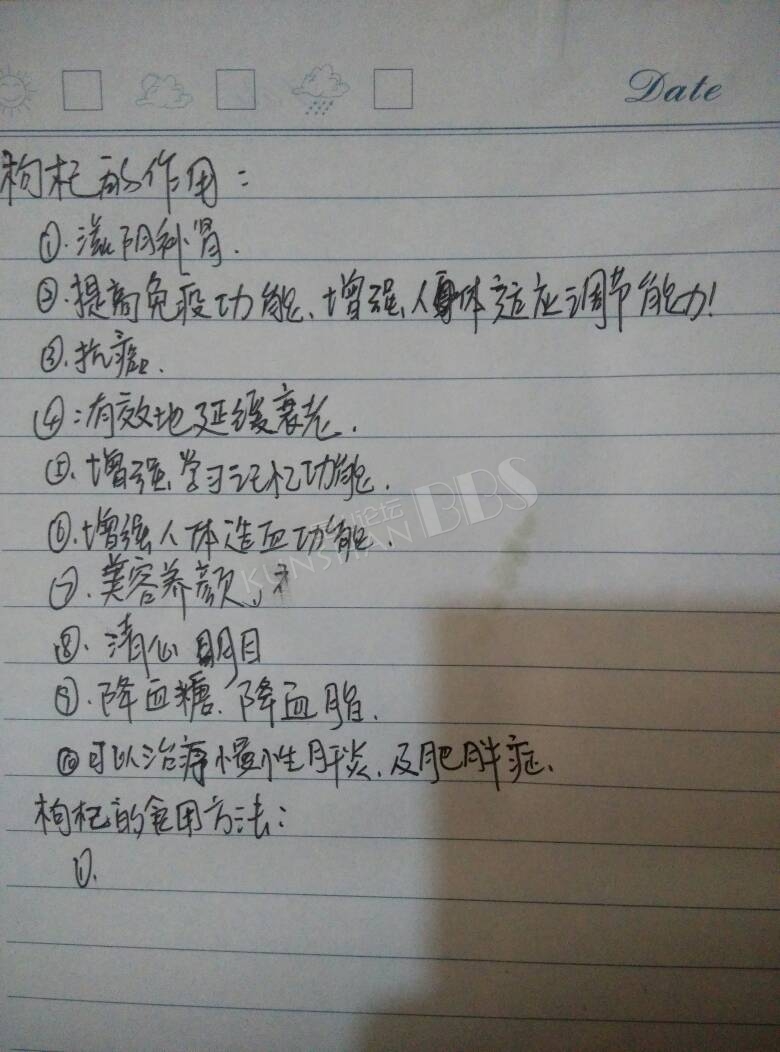 Date
枸杞的作用：
①.滋阴补肾.
②.提高免疫功能、增强人体适应调节能力!
③.抗癌.
④:有效地延缓衰老.
⑤.增强学习记忆功能.
⑥.增强人体造血功能.
⑦.美容养颜、
⑧.清心明目
⑨.降血糖、降血脂.
⑩可以治疗慢性肝炎、及肥胖症.
枸杞的食用方法：
①.
论坛
KUNSHAN BBS